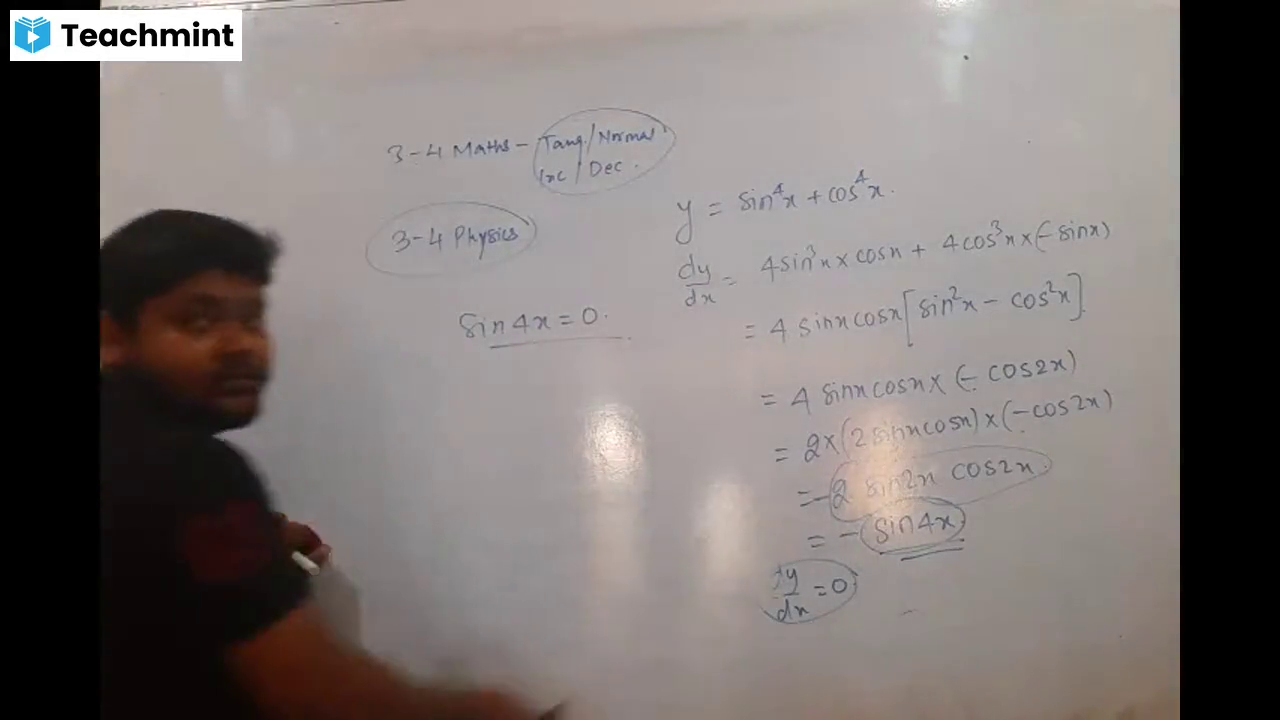 Teachmint
3-4 Maths - Tang/Normal
Inc/Dec.
3-4 Physics
sin4x = 0.
y = sin⁴x + cos⁴x.
dy/dx = 4sin³x × cosx + 4cos³x × (-sinx)
= 4 sinxcosx[sin²x - cos²x].
= 4 sinxcosx × (-cos2x)
= 2×(2sinxcosx)×(-cos2x)
= -2 sin2x cos2x.
= - sin4x
dy/dx = 0